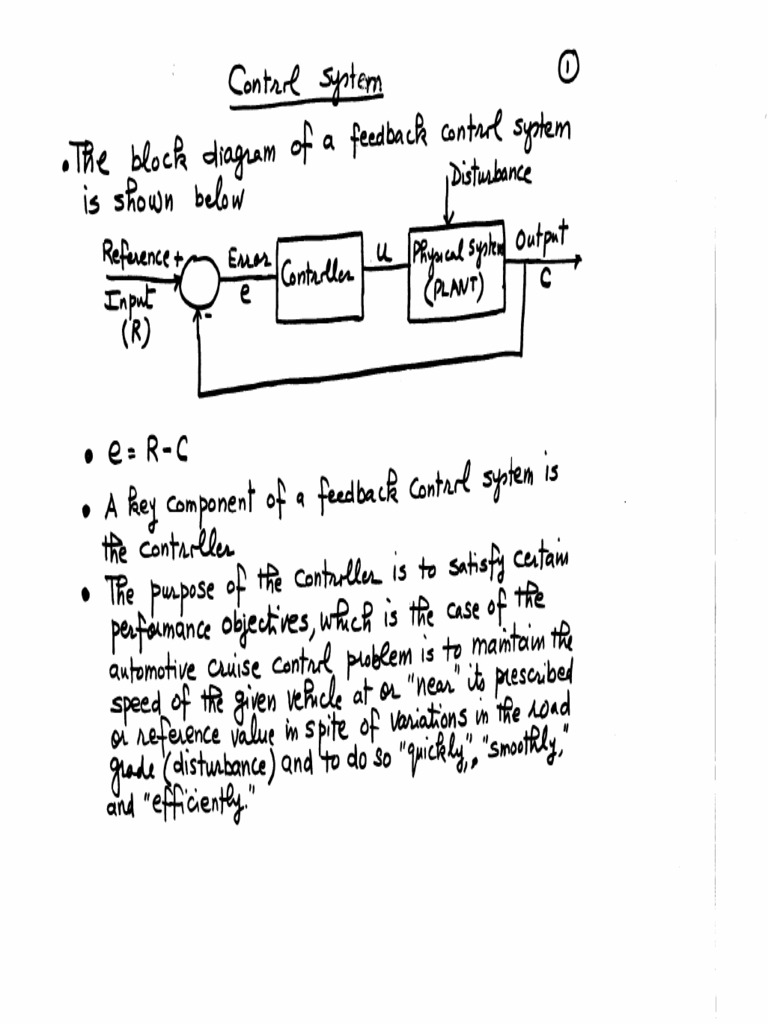 Control System
①
•The block diagram of a feedback control system
is shown below
Disturbance
Reference +
Input
(R)
-
Error
e
Controller
u
Physical System
(PLANT)
Output
C
• e = R - C
• A key component of a feedback control system is
the controller
• The purpose of the controller is to satisfy certain
performance objectives, which is the case of the
automotive cruise control problem is to maintain the
speed of the given vehicle at or "near" its prescribed
or reference value in spite of variations in the road
grade (disturbance) and to do so "quickly,", "smoothly,"
and "efficiently."